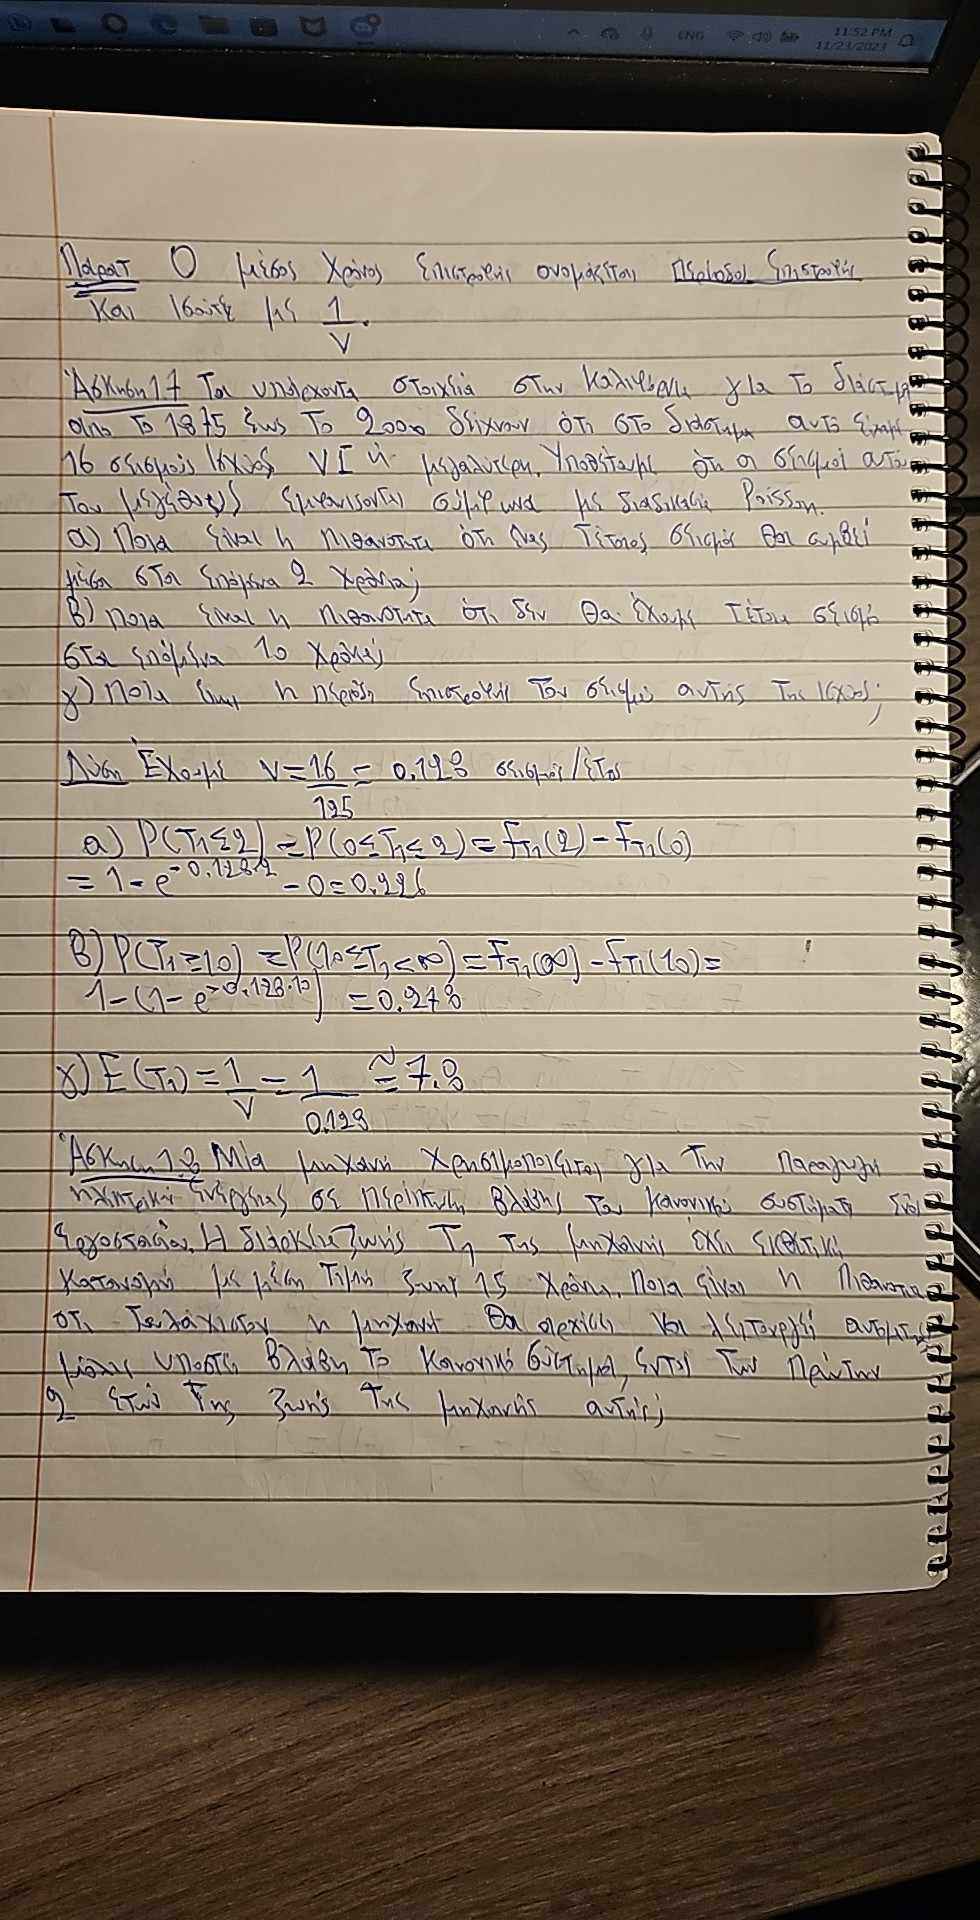 ENG 11:52 PM
11/23/2023
Παρατ Ο μέσος χρόνος επιστροφής ονομάζεται περίοδος επιστροφής
και ισούται με 1/ν.
Άσκηση 17 Τα υπάρχοντα στοιχεία στην Καλιφόρνια για το διάστημα
από το 1875 έως το 2000 δείχνουν ότι στο διάστημα αυτό είχαμε
16 σεισμούς ισχύος VI ή μεγαλύτερη. Υποθέτουμε ότι οι σεισμοί αυτού
του μεγέθους εμφανίζονται σύμφωνα με διαδικασία Poisson.
α) Ποια είναι η πιθανότητα ότι ένας τέτοιος σεισμός θα συμβεί
μέσα στα επόμενα 2 χρόνια;
β) Ποια είναι η πιθανότητα ότι δεν θα έχουμε τέτοιο σεισμό
στα επόμενα 10 χρόνια;
γ) Ποια είναι η περίοδος επιστροφής του σεισμού αυτής της ισχύος;
Λύση Έχουμε ν=16/125 = 0.128 σεισμούς/έτος
α) P(T₁≤2) = P(0≤T₁≤2) = F_T₁(2) - F_T₁(0)
= 1 - e^-0.128·2 - 0 = 0.226
β) P(T₁≥10) = P(10≤T₁<∞) = F_T₁(∞) - F_T₁(10) =
1-(1-e^-0.128·10) = 0.278
γ) E(T₁) = 1/ν = 1/0.128 ≅ 7.8
Άσκηση 18 Μία μηχανή χρησιμοποιείται για την παραγωγή
ηλεκτρικής ενέργειας σε περίπτωση βλάβης του κανονικού συστήματος ενός
εργοστασίου. Η διάρκεια ζωής T₁ της μηχανής έχει εκθετική
κατανομή με μέση τιμή ζωής 15 χρόνια. Ποια είναι η πιθανότητα
ότι τουλάχιστον η μηχανή θα αρχίσει να λειτουργεί αυτόματα
μόλις υποστεί βλάβη το κανονικό σύστημα, εντός των πρώτων
2 ετών της ζωής της μηχανής αυτής;